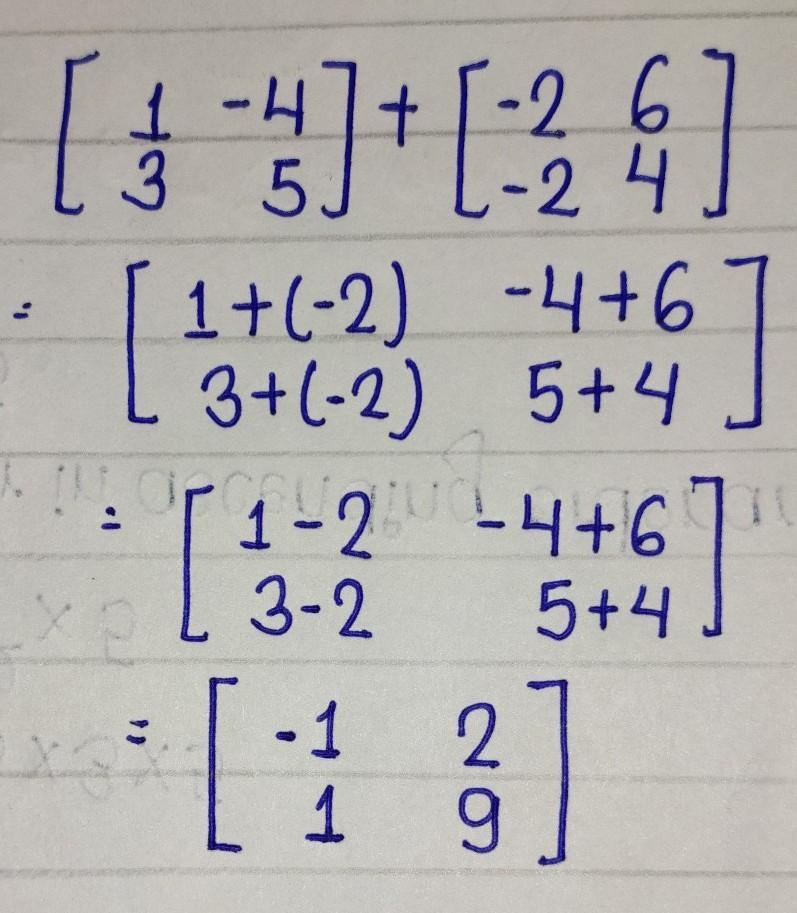 [ 1 -4 ] + [ -2 6 ]
[ 3 5 ] [ -2 4 ]
= [ 1+(-2) -4+6 ]
[ 3+(-2) 5+4 ]
= [ 1-2 -4+6 ]
[ 3-2 5+4 ]
= [ -1 2 ]
[ 1 9 ]